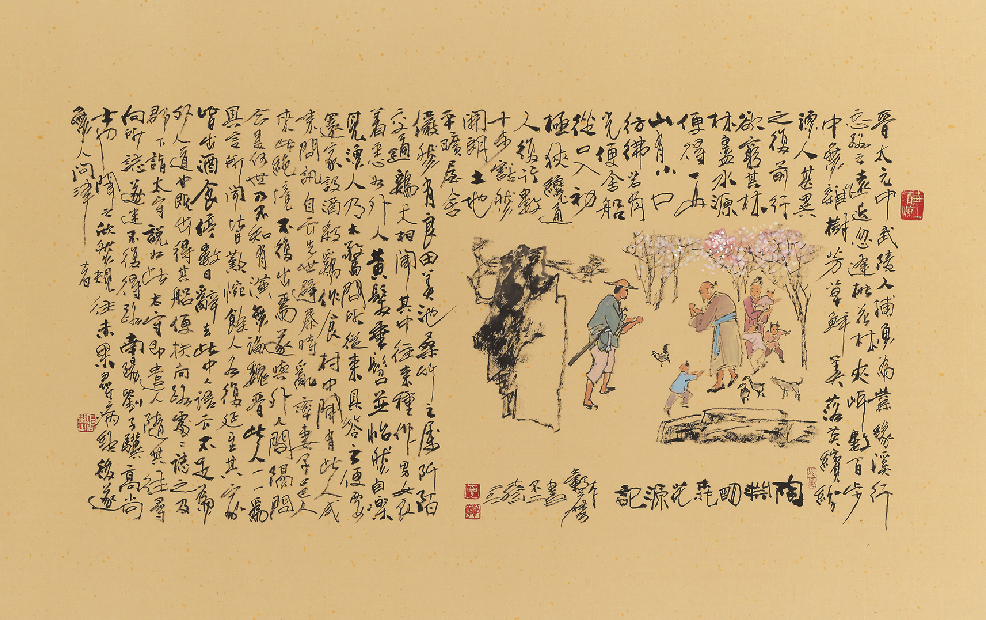 晋太元中武陵人捕魚為業緣溪行
忘路之遠近忽逢桃花林夾岸數百步
中無雜樹芳草鮮美落英繽紛
漁人甚異
之復前行
欲窮其林
林盡水源
便得一山
山有小口
彷彿若有
光便舍船
從口入初
極狹纔通
人復行數
十步豁然
開朗土地
平曠屋舍
儼然有良田美池桑竹之属阡陌
交通鷄犬相聞其中往来種作男女衣
着悉如外人黄髮垂髫並怡然自樂
見漁人乃大驚問所從来具答之便要
還家設酒殺鷄作食村中聞有此人咸
来問訊自云先世避秦時亂率妻子邑人
来此絶境不復出焉遂與外人間隔問
今是何世乃不知有漢無論魏晋此人一一為
具言所聞皆歎惋餘人各復延至其家
皆出酒食停數日辭去此中人語云不足為
外人道也既出得其船便扶向路處々誌之及
郡下詣太守説如此太守即遣人隨其往尋
向所誌遂迷不復得路南陽劉子驥高尚
士也聞之欣然規往未果尋病終後遂
無人問津
陶淵明桃花源記